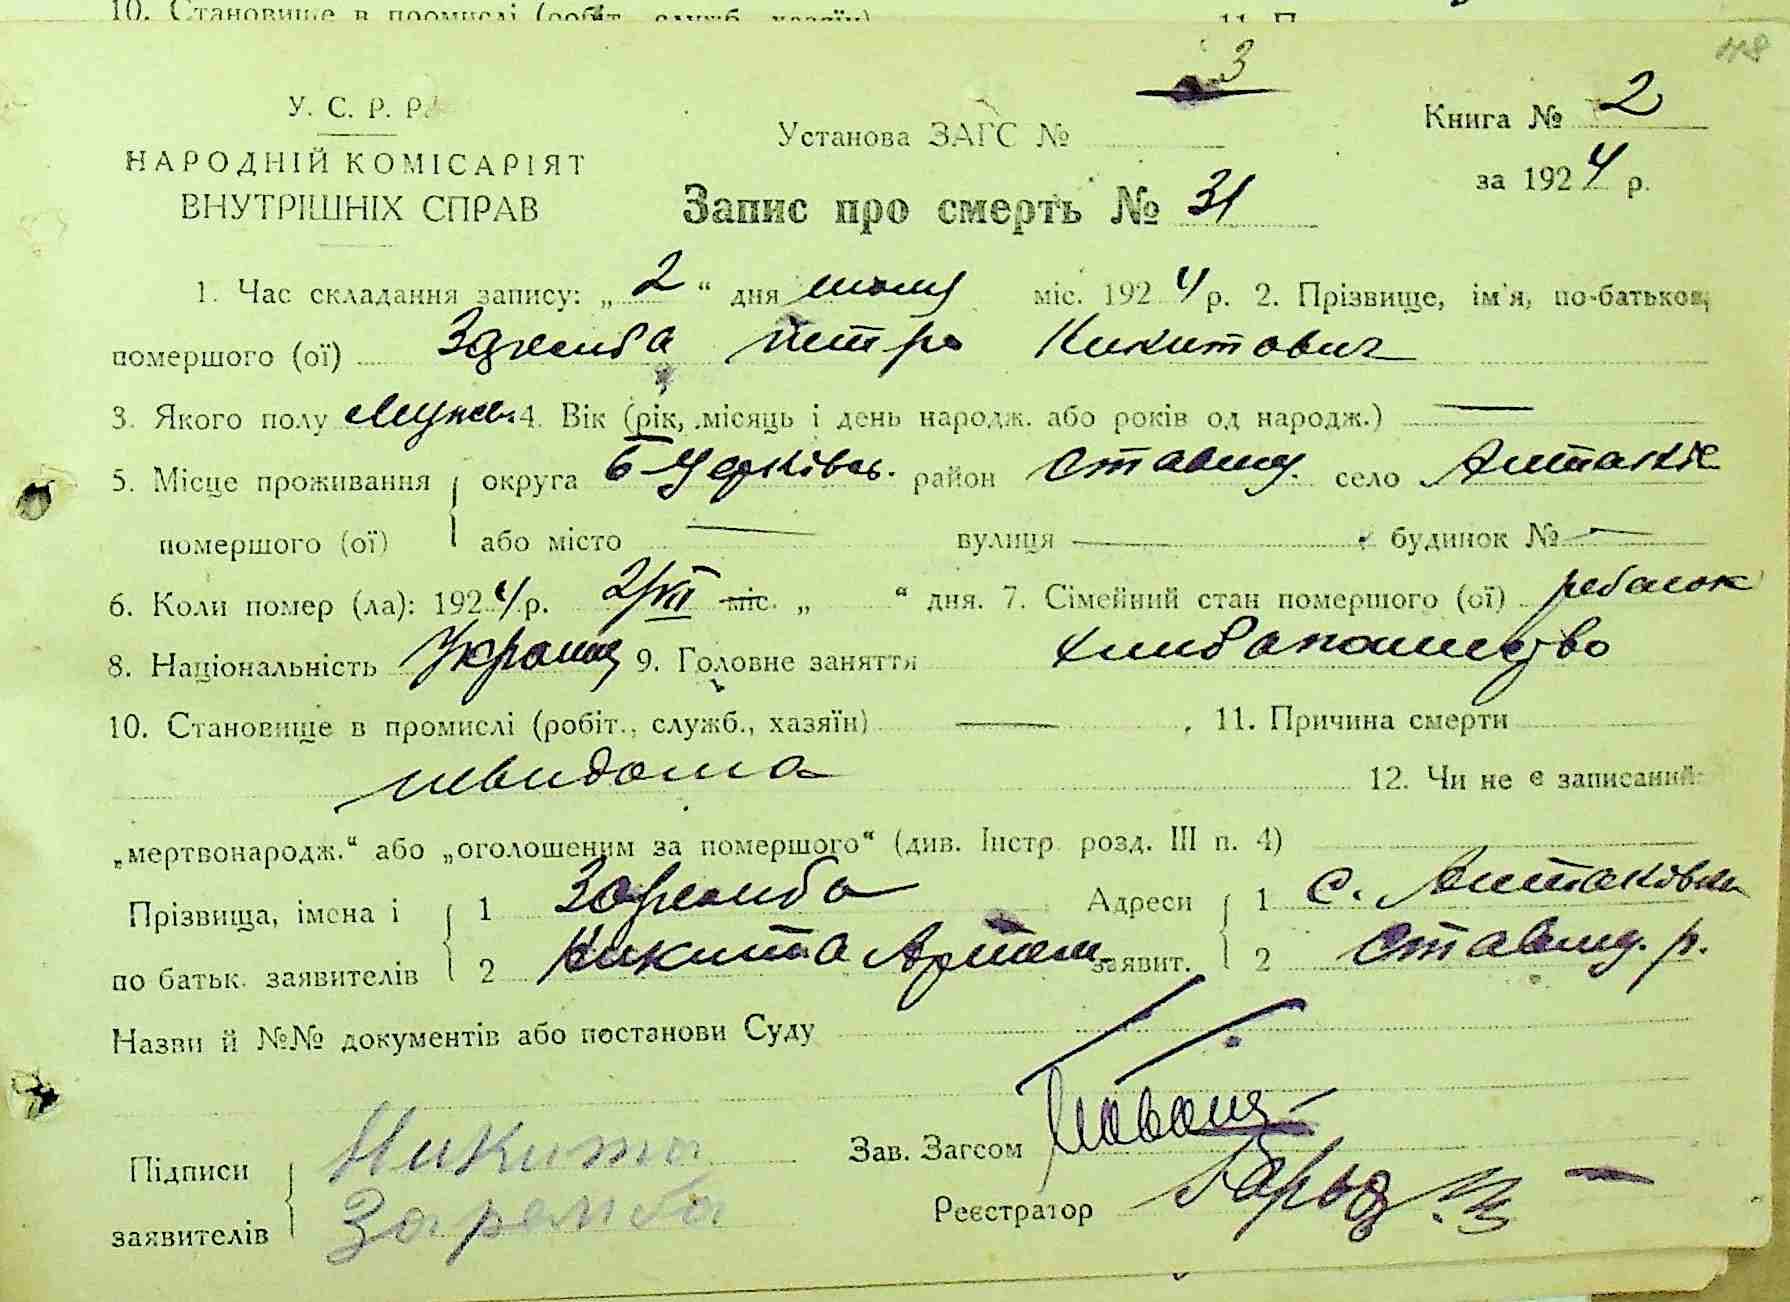 10. Становище в промислі (робіт., служб., хазяїн) 11. П
118
3
У. С. Р. Р.
НАРОДНІЙ КОМІСАРІЯТ
ВНУТРІШНІХ СПРАВ
Установа ЗАГС №
Книга № 2
за 1924 р.
Запис про смерть № 31
1. Час складання запису: „ 2 “ дня міс. 1924 р. 2. Прізвище, ім'я, по-батькові,
помершого (ої) Заремба Петро Никитович
3. Якого полу Мужс. 4. Вік (рік, місяць і день народж. або років од народж.) —
5. Місце проживання { округа Б Церківсь. район Ставищ. село
помершого (ої) або місто — вулиця — будинок № —
6. Коли помер (ла): 1924 р. 2/VII міс. „ “ дня. 7. Сімейний стан помершого (ої) ребьонок
8. Національність 9. Головне заняття
10. Становище в промислі (робіт., служб., хазяїн) — , 11. Причина смерти
невидома
12. Чи не є записаний
„мертвонародж.“ або „оголошеним за помершого“ (див. Інстр. розд. III п. 4)
Прізвища, імена і { 1 Заремба Адреси { 1 с.
по батьк. заявителів 2 Никита Артем. заявит. 2 Ставищ. р.
Назви й №№ документів або постанови Суду
Підписи { Никита
заявителів Заремба
Зав. Загсом
Реєстратор